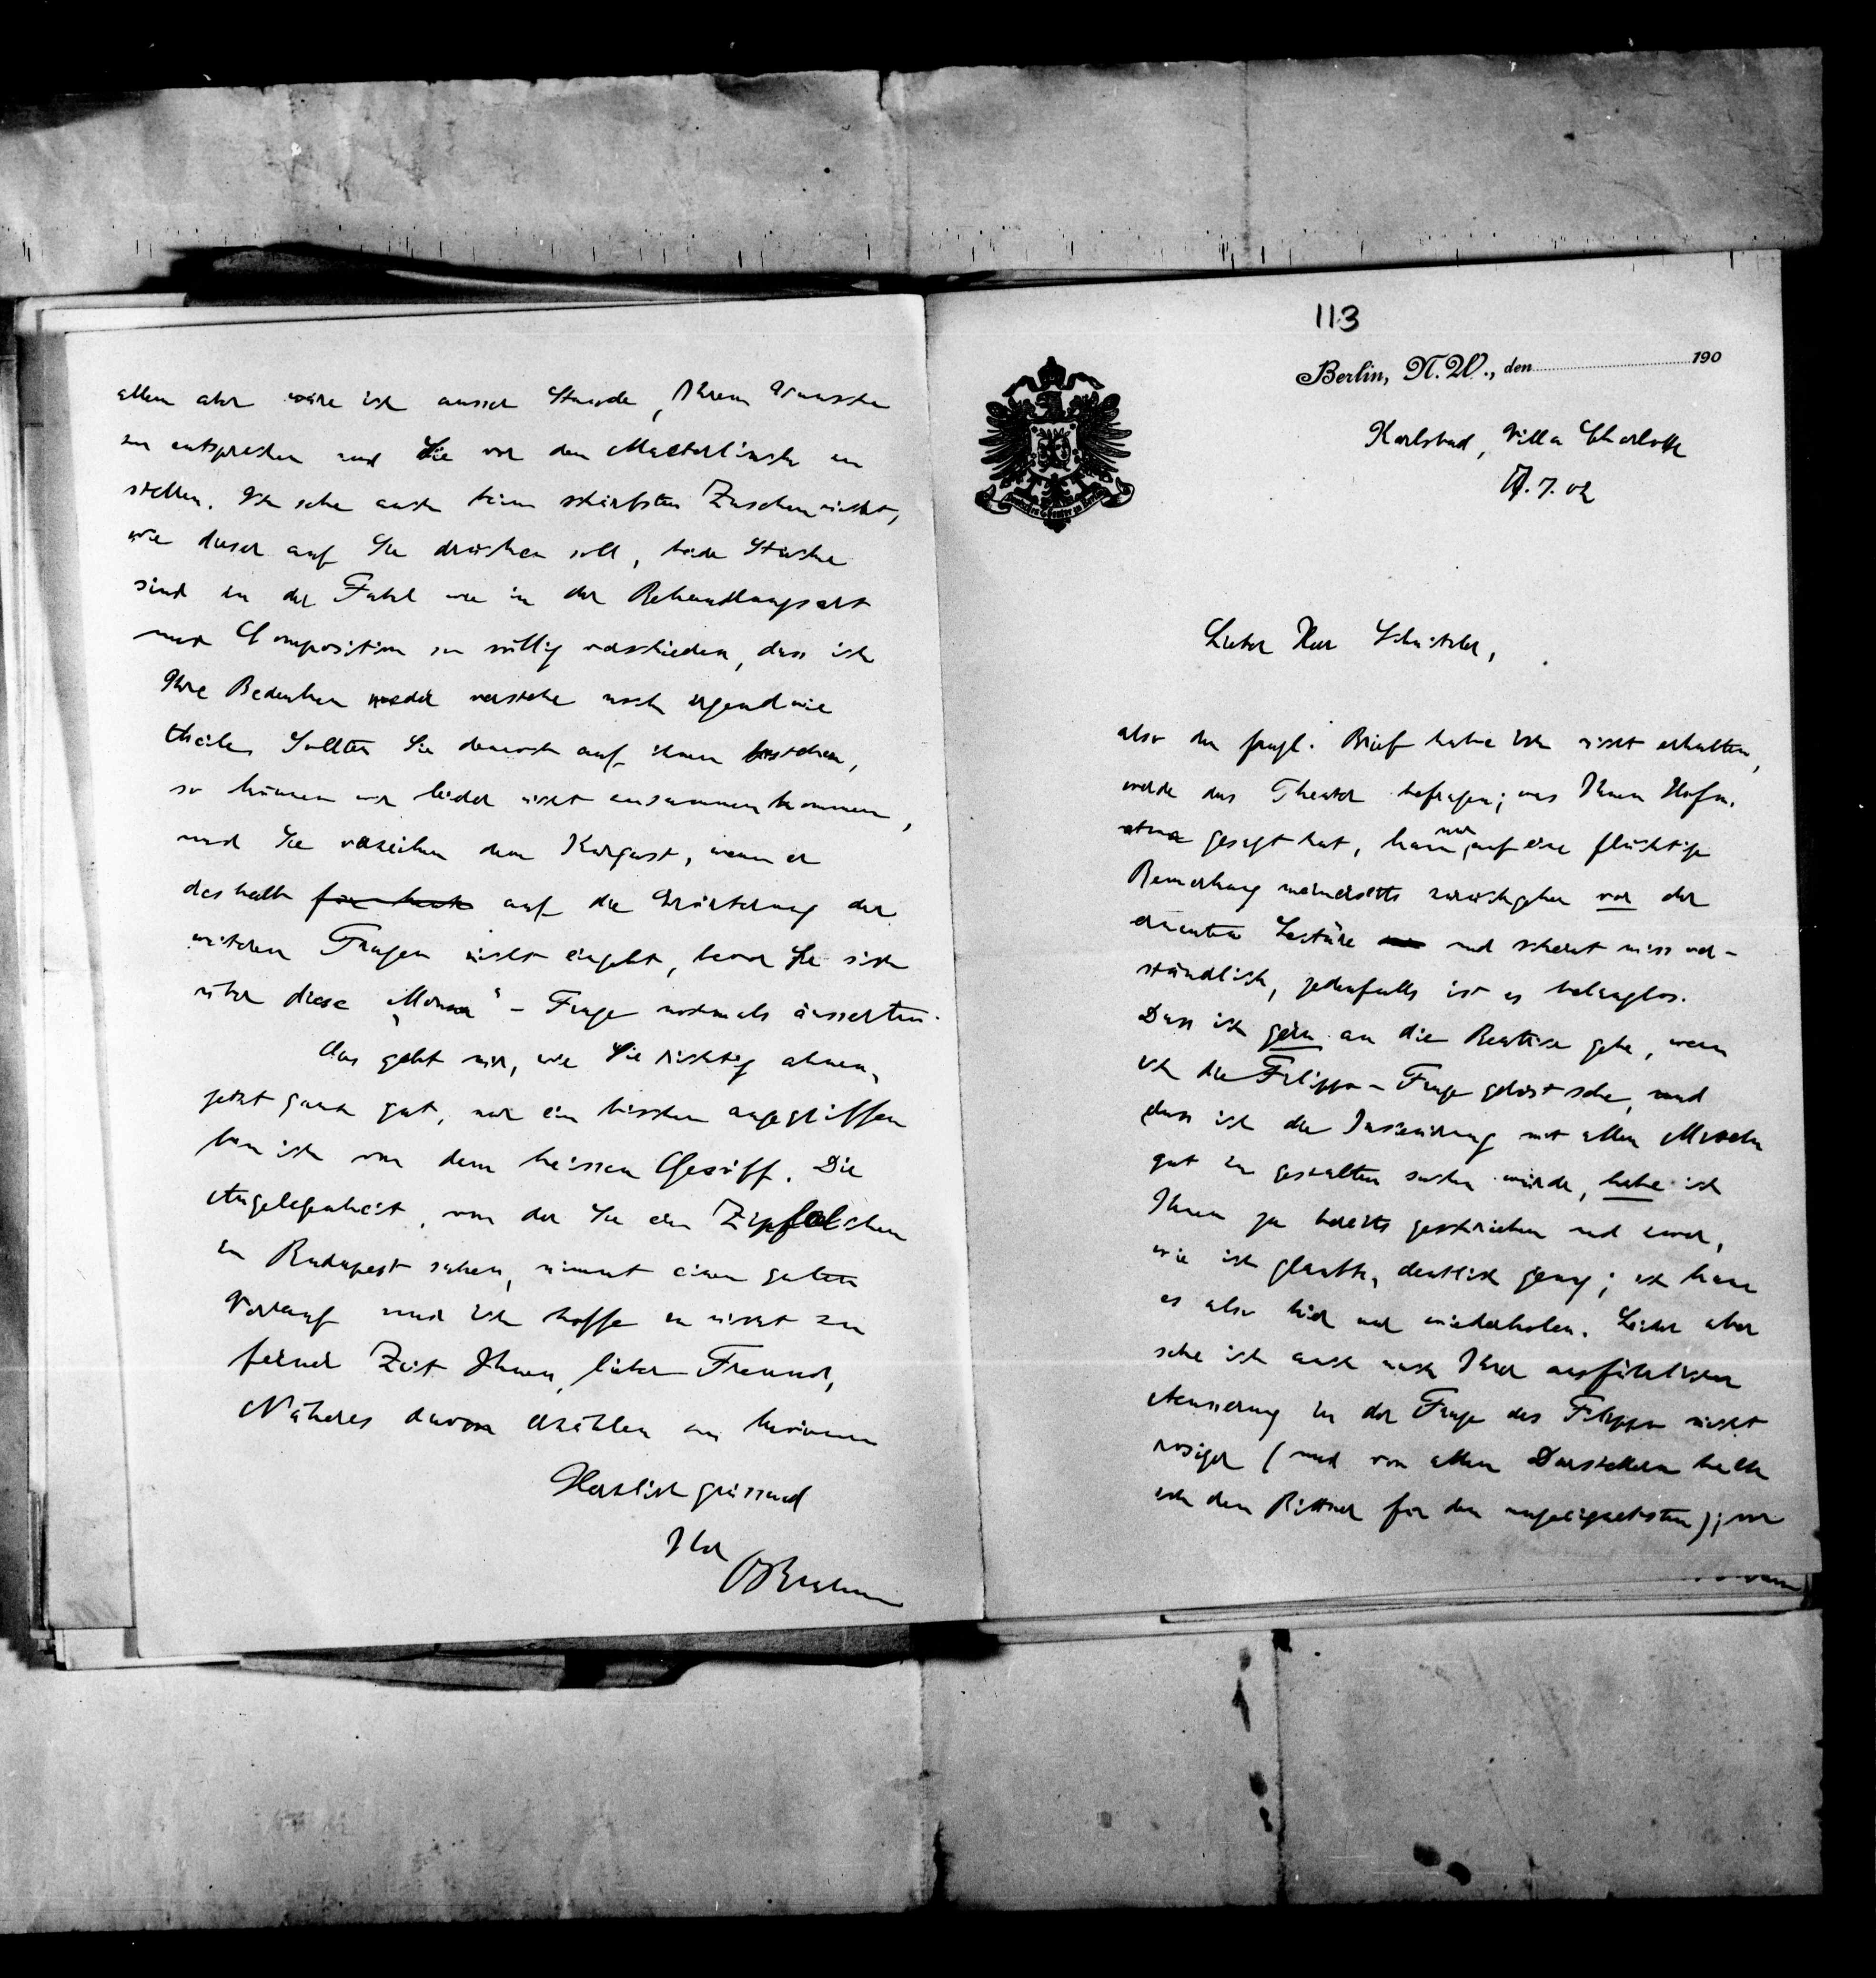 allem aber wäre ich ausser Stande, Ihrem Wunsche
zu entsprechen und Sie vor den Maeterlinck zu
stellen. Ich sehe auch beim schärfsten Zusehen nicht,
wie dieser auf Sie drücken soll, beide Stücke
sind in der Fabel wie in der Behandlungsart
und Composition so völlig verschieden, dass ich
Ihre Bedenken weder verstehe noch irgendwie
theile. Sollten Sie dennoch auf ihnen bestehen,
so können wir leider nicht zusammenkommen,
und Sie verzeihen dem Kurgast, wenn er
deshalb auf die Erörterung der
weiteren Fragen nicht eingeht, bevor Sie sich
über diese „Monna“ - Frage nochmals äusserten.
Das geht mir, wie Sie richtig ahnen,
jetzt ganz gut, nur ein bisschen angegriffen
bin ich von dem heissen Gesöff. Die
Angelegenheit, von der Sie ein Zipfelchen
in Budapest sahen, nimmt einen guten
Verlauf und ich hoffe in nicht zu
ferner Zeit Ihnen, lieber Freund,
Näheres davon erzählen zu können
Herzlich grüssend
Ihr
OBrahm
113
Berlin, N.W., den 190
Karlsbad, Villa Charlotte
7.7.02
Lieber Herr Schnitzler,
also den fragl. Brief habe ich nicht erhalten,
werde das Theater befragen; was Ihnen Hofm.
etwa gesagt hat, kann nur auf eine flüchtige
Bemerkung meinerseits zurückgehen vor der
erneuten Lectüre und scheint missver-
ständlich, jedenfalls ist es belanglos.
Dass ich gern an die Beatrice gehe, wenn
ich die Filippo - Frage gelöst sehe, und
dass ich die Inscenirung mit allen Mitteln
gut zu gestalten suchen würde, habe ich
Ihnen ja bereits geschrieben und zwar,
wie ich glaubte, deutlich genug; ich kann
es also hier nur wiederholen. Leider aber
sehe ich auch nach Ihrer ausführlichen
Aeusserung in der Frage des Filippo nicht
rosiger (und von allen Darstellern halte
ich den Rittner für den ungeeignetsten); vor